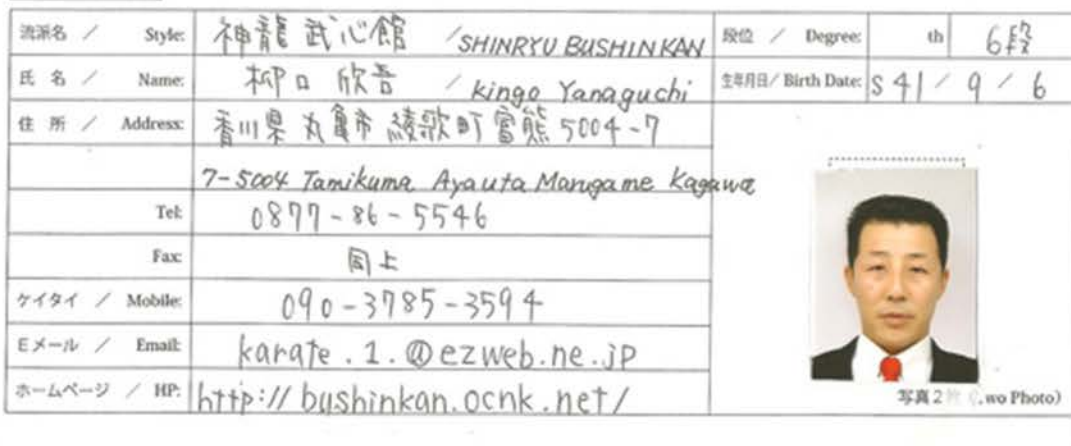 流派名 / Style: 神龍 武心館 /SHINRYU BUSHINKAN 段位 / Degree: th 6段
氏 名 / Name: 柳口 欣吾 / kingo Yanaguchi 生年月日/ Birth Date: S 41 / 9 / 6
住 所 / Address: 香川県 丸亀市 綾歌町 富熊 5004-7
7-5004 Tamikuma Ayauta Marugame Kagawa
Tel: 0877-86-5546
Fax: 同上
ケイタイ / Mobile: 090-3785-3594
Eメール / Email: karate.1.@ezweb.ne.jp
ホームページ / HP: http://bushinkan.ocnk.net/
写真2 wo Photo)